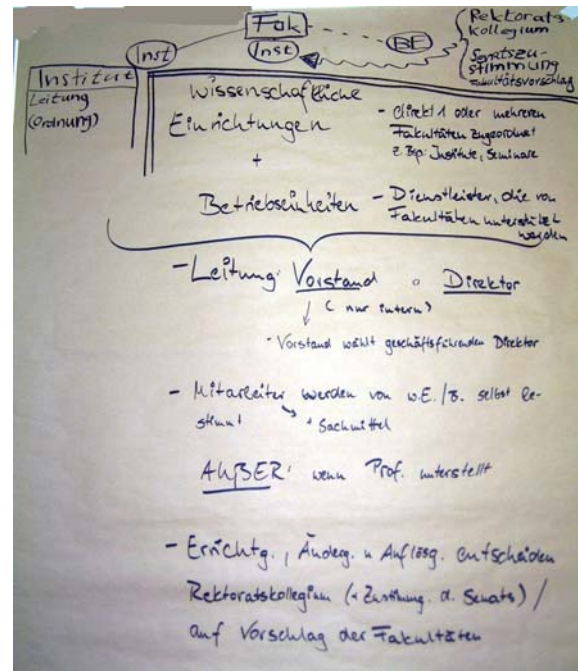 Fak
Rektorats
kollegium
Inst
Inst
BE
Senatszu-
stimmung
Fakultätsvorschlag
Institut
Leitung
(Ordnung)
Wissenschaftliche
Einrichtungen
- direkt 1 oder mehreren
Fakultäten zugeordnet
z. Bsp: Institute, Seminare
+
Betriebseinheiten
- Dienstleister, die von
Fakultäten unterstützt
werden
- Leitung: Vorstand o Direktor
(nur intern)
- Vorstand wählt geschäftsführenden Direktor
- Mitarbeiter werden von w.E./B. selbst be-
stimmt
+ Sachmittel
AUßER: wenn Prof. unterstellt
- Errichtg., Änderg. u Auflösg. entscheiden
Rektoratskollegium (+ Zustimung. d. Senats) /
auf Vorschlag der Fakultäten